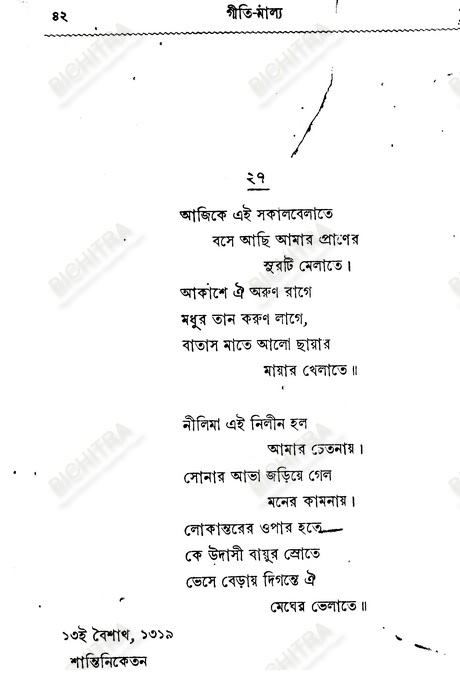 ৪২
গীতি-মাল্য
২৭
আজিকে এই সকালবেলাতে
বসে আছি আমার প্রাণের
সুরটি মেলাতে।
আকাশে ঐ অরুণ রাগে
মধুর তান করুণ লাগে,
বাতাস মাতে আলো ছায়ার
মায়ার খেলাতে॥
নীলিমা এই নিলীন হল
আমার চেতনায়।
সোনার আভা জড়িয়ে গেল
মনের কামনায়।
লোকান্তরের ওপার হতে
কে উদাসী বায়ুর স্রোতে
ভেসে বেড়ায় দিগন্তে ঐ
মেঘের ভেলাতে॥
১৩ই বৈশাখ, ১৩১৯
শান্তিনিকেতন
BICHITRA
BICHITRA
BICHITRA
BICHITRA
BICHITRA
BICHITRA
BICHITRA
BICHITRA